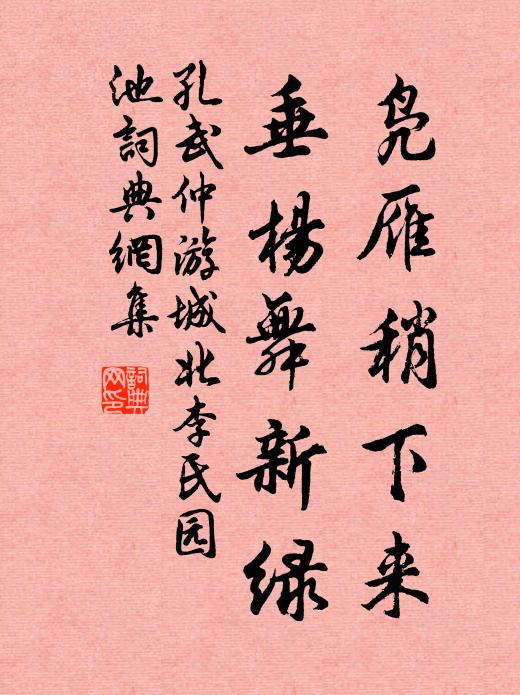 凫雁稍下来
垂楊舞新绿
孔武仲游城北李氏园
池詞典網集
詞典
网印